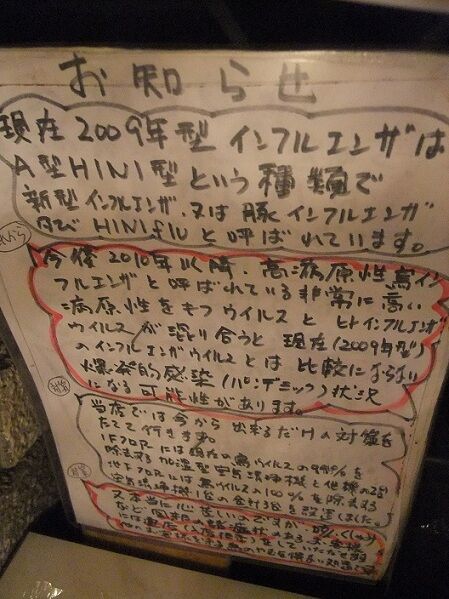 お知らせ
現在2009年型インフルエンザは
A型H1N1型という種類で
新型インフルエンザ又は豚インフルエンザ
及びH1N1fluと呼ばれています。
今後2010年以降、高病原性鳥イン
フルエンザと呼ばれている非常に高い
病原性をもつウイルスとヒトインフルエンザ
ウイルスが混り合うと現在(2009年型)
のインフルエンザウイルスとは比較にならない
爆発的感染(パンデミック)状況
になる可能性があります。
対策
当店では今から出来るだけの対策を
たてて行きます。
1Fフロアには現在の鳥ウイルスの99%を
除去する加湿型空気清浄機と他機の2台
地下フロアには鳥ウイルスの100%を除去する
空気清浄機1台の合計3台を設置しました。
又本当に心苦しいのですが咳、くしゃみ
など